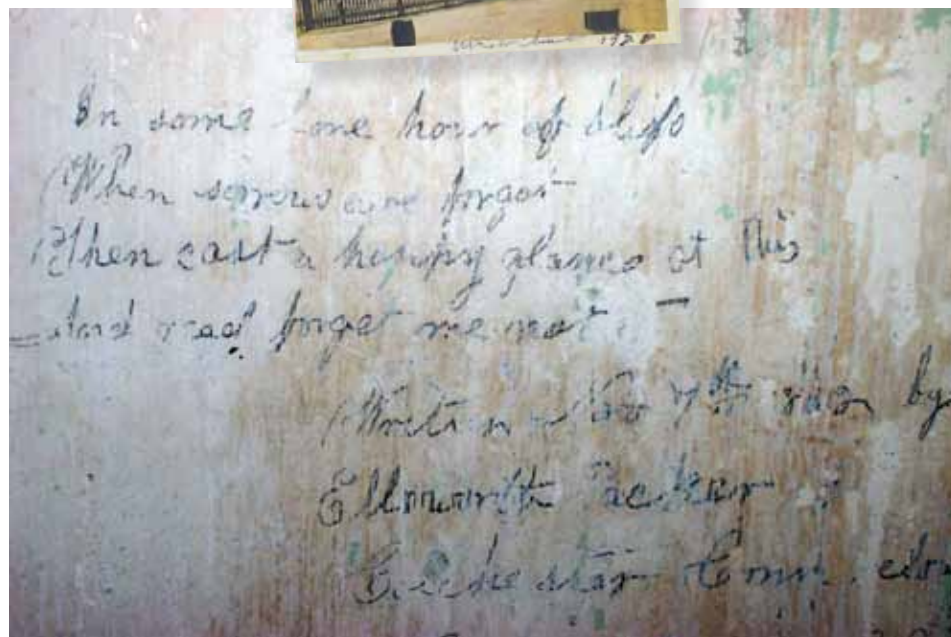 1928
In some lone hour of bliss
When sorrows are forgot
Then cast a happy glance at This
And read forget me not. –
Writen Nov 7th by
Ellsworth Packer
Colchester Conn.